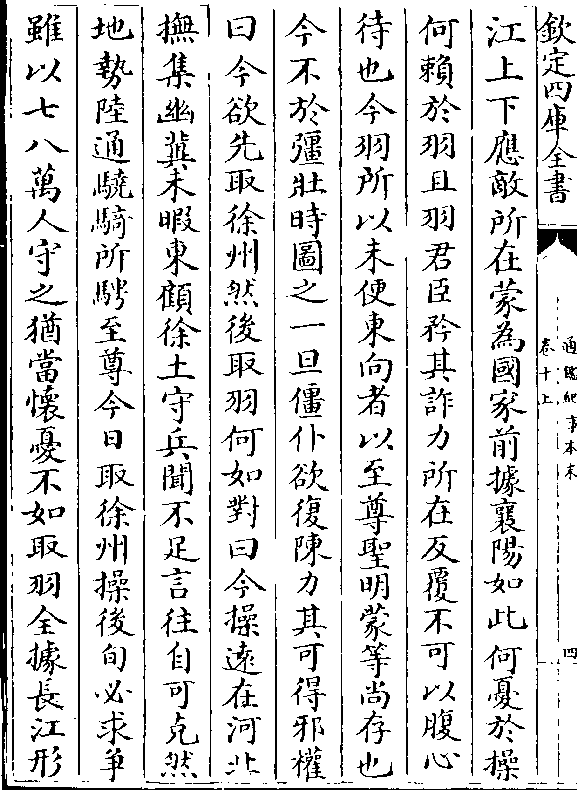 欽定四庫全書
通鑑紀事本末
卷十上
四
江上下應敵所在蒙為國家前據襄陽如此何憂於操
何賴於羽且羽君臣矜其詐力所在反覆不可以腹心
待也今羽所以未便東向者以至尊聖明蒙等尚存也
今不於彊壯時圖之一旦僵仆欲復陳力其可得邪權
曰今欲先取徐州然後取羽何如對曰今操遠在河北
撫集幽冀未暇東顧徐土守兵聞不足言往自可克然
地勢陸通驍騎所騁至尊今日取徐州操後旬必求爭
雖以七八萬人守之猶當懷憂不如取羽全據長江形